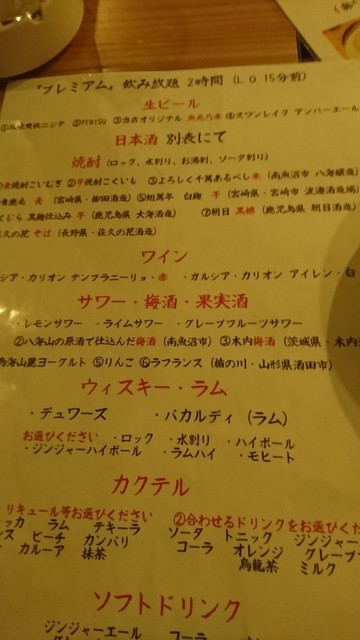 『プレミアム』飲み放題 2時間(L.O 15分前)
生ビール
②YEBISU ③当店オリジナル ④スワンレイク アンバーエール
日本酒 別表にて
焼酎(ロック、水割り、お湯割り、ソーダ割り)
麦焼酎こいむぎ ②芋焼酎こくいも ③よろしく千萬あるべし 米(南魚沼市 八海醸造
麦(宮崎県・柳田酒造) ⑤炬萬年 白麹 芋(宮崎県・宮崎市 渡邊酒造場)
くじら 黒麹仕込み 芋(鹿児島県 大海酒造) ⑦朝日 黒糖(鹿児島県 朝日酒造)
佐久の花 そば(長野県・佐久の花酒造)
ワイン
シア・カリオン テンプラニーリョ・赤 ・ガルシア・カリオン アイレン・白
サワー・梅酒・果実酒
・レモンサワー ・ライムサワー ・グレープフルーツサワー
②八海山の原酒で仕込んだ梅酒(南魚沼市) ③木内梅酒(茨城県・木内
鳥海山麓ヨーグルト ⑤りんご ⑥ラフランス(楯の川・山形県酒田市)
ウィスキー・ラム
・デュワーズ ・バカルディ(ラム)
お選びください ・ロック ・水割り ・ハイボール
・ジンジャーハイボール ・ラムハイ ・モヒート
カクテル
リキュール等お選びください ②合わせるドリンクをお選びくだ
ッカ ラム テキーラ ソーダ トニック ジンジャー
ンス ピーチ カンパリ コーラ オレンジ グレープ
カルーア 抹茶 烏龍茶 ミルク
ソフトドリンク
ジンジャーエール コーラ